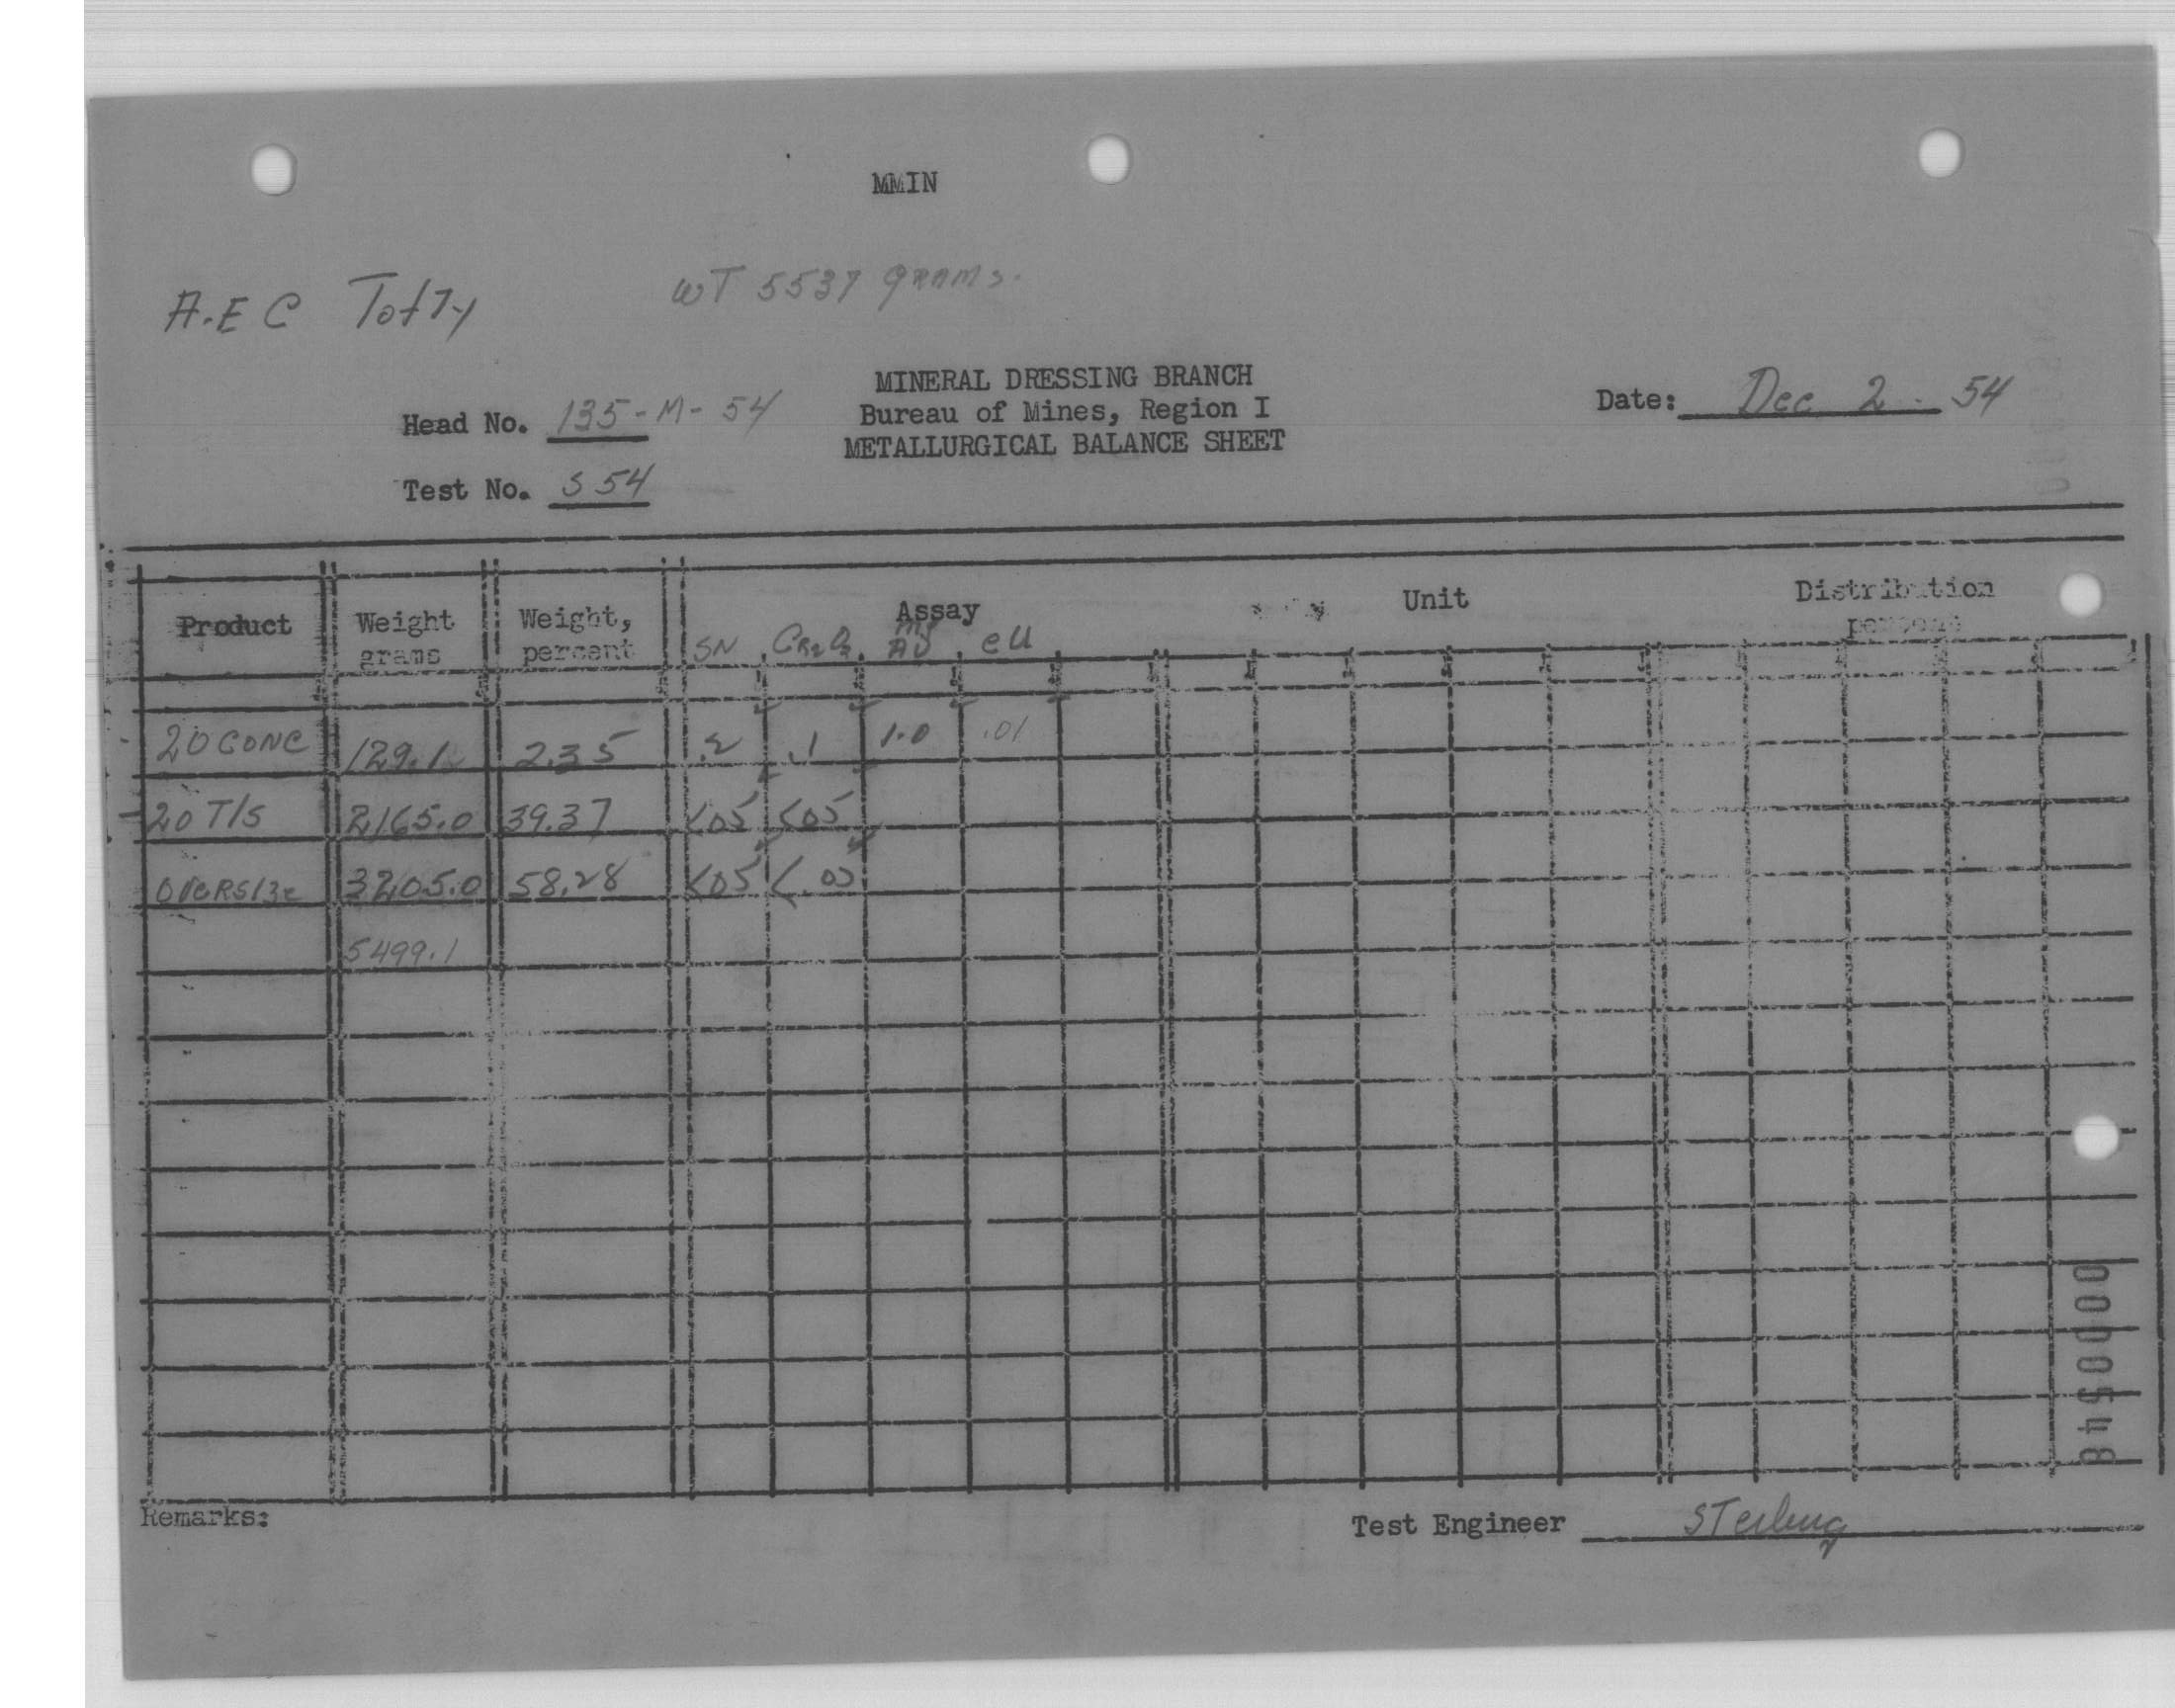 MMIN
A.E C Tofty WT 5537 grams.
MINERAL DRESSING BRANCH
Head No. 135-M-54 Bureau of Mines, Region I Date: Dec 2. 54
METALLURGICAL BALANCE SHEET
Test No. S 54
Product Weight grams Weight, percent Assay Unit Distribution percent
SN Cr2O3 mg AU eU
20 CONC 129.1 2.35 .2 .1 1.0 .01
20 T/S 2165.0 39.37 <05 <05
OVERSIZE 3205.0 58.28 <05 <.05
5499.1
0000548
Remarks: Test Engineer Sterling